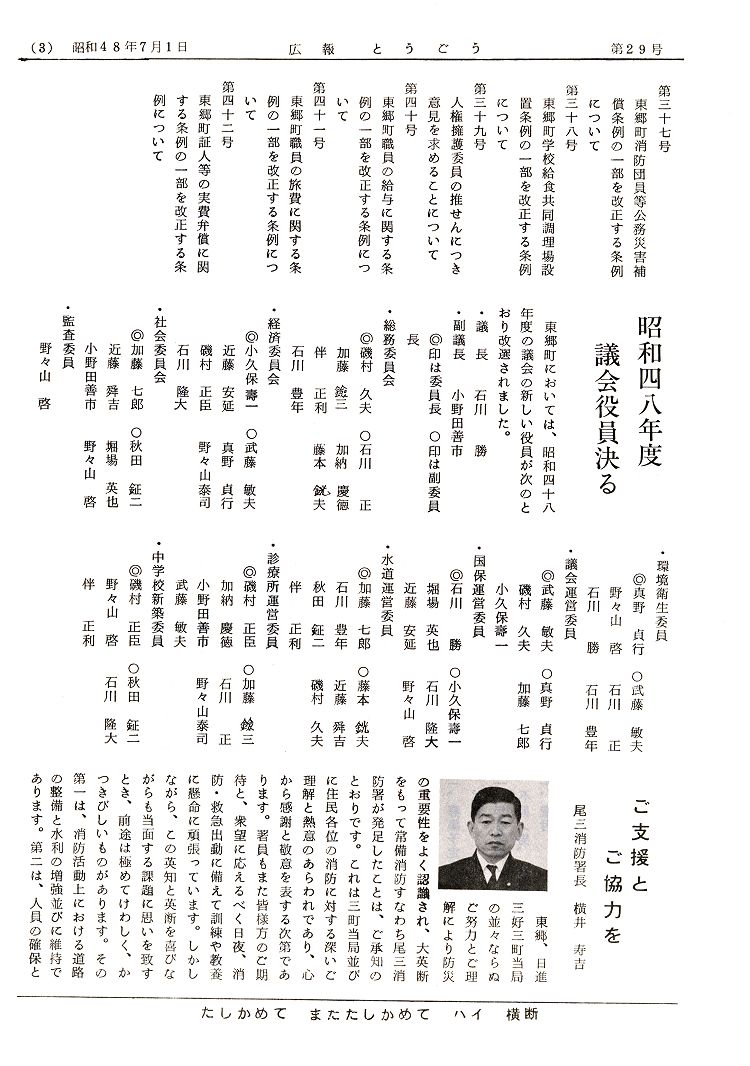 (3) 昭和48年7月1日
広報 とうごう
第29号
第三十七号
東郷町消防団員等公務災害補
償条例の一部を改正する条例
について
第三十八号
東郷町学校給食共同調理場設
置条例の一部を改正する条例
について
第三十九号
人権擁護委員の推せんにつき
意見を求めることについて
第四十号
東郷町職員の給与に関する条
例の一部を改正する条例につ
いて
第四十一号
東郷町職員の旅費に関する条
例の一部を改正する条例につ
いて
第四十二号
東郷町証人等の実費弁償に関
する条例の一部を改正する条
例について
昭和四八年度
議会役員決る
東郷町においては、昭和四十八
年度の議会の新しい役員が次のと
おり改選されました。
・議長 石川 勝
・副議長 小野田善市
◎印は委員長 ○印は副委員
長
・総務委員会
◎磯村 久夫 ○石川 正
加藤 鐱三 加納 慶徳
伴 正利 藤本 銧夫
石川 豊年
・経済委員会
◎小久保壽一 ○武藤 敏夫
近藤 安延 真野 貞行
磯村 正臣 野々山泰司
石川 隆大
・社会委員会
◎加藤 七郎 ○秋田 鉦二
近藤 舜吉 堀場 英也
小野田善市 野々山 啓
・監査委員
野々山 啓
・環境衛生委員
◎真野 貞行 ○武藤 敏夫
野々山 啓 石川 正
石川 勝 石川 豊年
・議会運営委員
◎武藤 敏夫 ○真野 貞行
磯村 久夫 加藤 七郎
小久保壽一
・国保運営委員
◎石川 勝 ○小久保壽一
堀場 英也 石川 隆大
近藤 安延 野々山 啓
・水道運営委員
◎加藤 七郎 ○藤本 銧夫
石川 豊年 近藤 舜吉
秋田 鉦二 磯村 久夫
伴 正利
・診療所運営委員
◎磯村 正臣 ○加藤 鐱三
加納 慶徳 石川 正
小野田善市 野々山泰司
武藤 敏夫
・中学校新築委員
◎磯村 正臣 ○秋田 鉦二
野々山 啓 石川 隆大
伴 正利
ご支援と
ご協力を
尾三消防署長 横井 寿吉
東郷、日進
三好三町当局
の並々ならぬ
ご努力とご理
解により防災
の重要性をよく認識され、大英断
をもって常備消防すなわち尾三消
防署が発足したことは、ご承知の
とおりです。これは三町当局並び
に住民各位の消防に対する深いご
理解と熱意のあらわれであり、心
から感謝と敬意を表する次第であ
ります。署員もまた皆様方のご期
待と、衆望に応えるべく日夜、消
防・救急出動に備えて訓練や教養
に懸命に頑張っています。しかし
ながら、この英知と英断を喜びな
がらも当面する課題に思いを致す
とき、前途は極めてけわしく、か
つきびしいものがあります。その
第一は、消防活動上における道路
の整備と水利の増強並びに維持で
あります。第二は、人員の確保と
たしかめて またたしかめて ハイ 横断